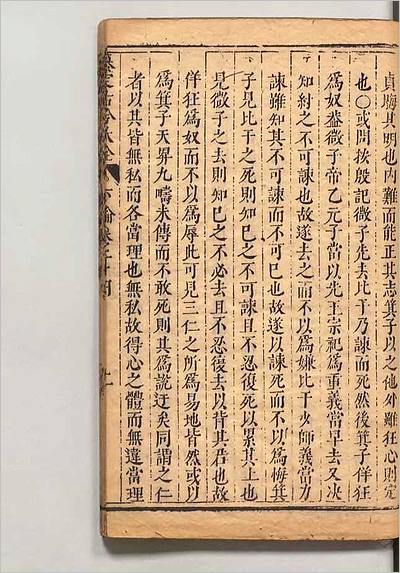 貞晦其明也内難而能正其志箕子以之他外雖狂心則定
也○或問按殷記微子先去比干乃諫而死然後箕子佯狂
為奴蓋微子帝乙元子當以先王宗祀為重義當早去又决
知紂之不可諫也故遂去之而不以為嫌比干少師義當力
諫雖知其不可諫而不可已也故遂以諫死而不以為悔箕
子見比干之死則知己之不可諫且不忍復死以累其上也
見微子之去則知己之不必去且不忍復去以背其君也故
佯狂為奴而不以為辱此可見三仁之所為易地皆然或以
為箕子天畀九疇未傳而不敢死則其為說迂矣同謂之仁
者以其皆無私而各當理也無私故得心之體而無違當理
下論卷之十四